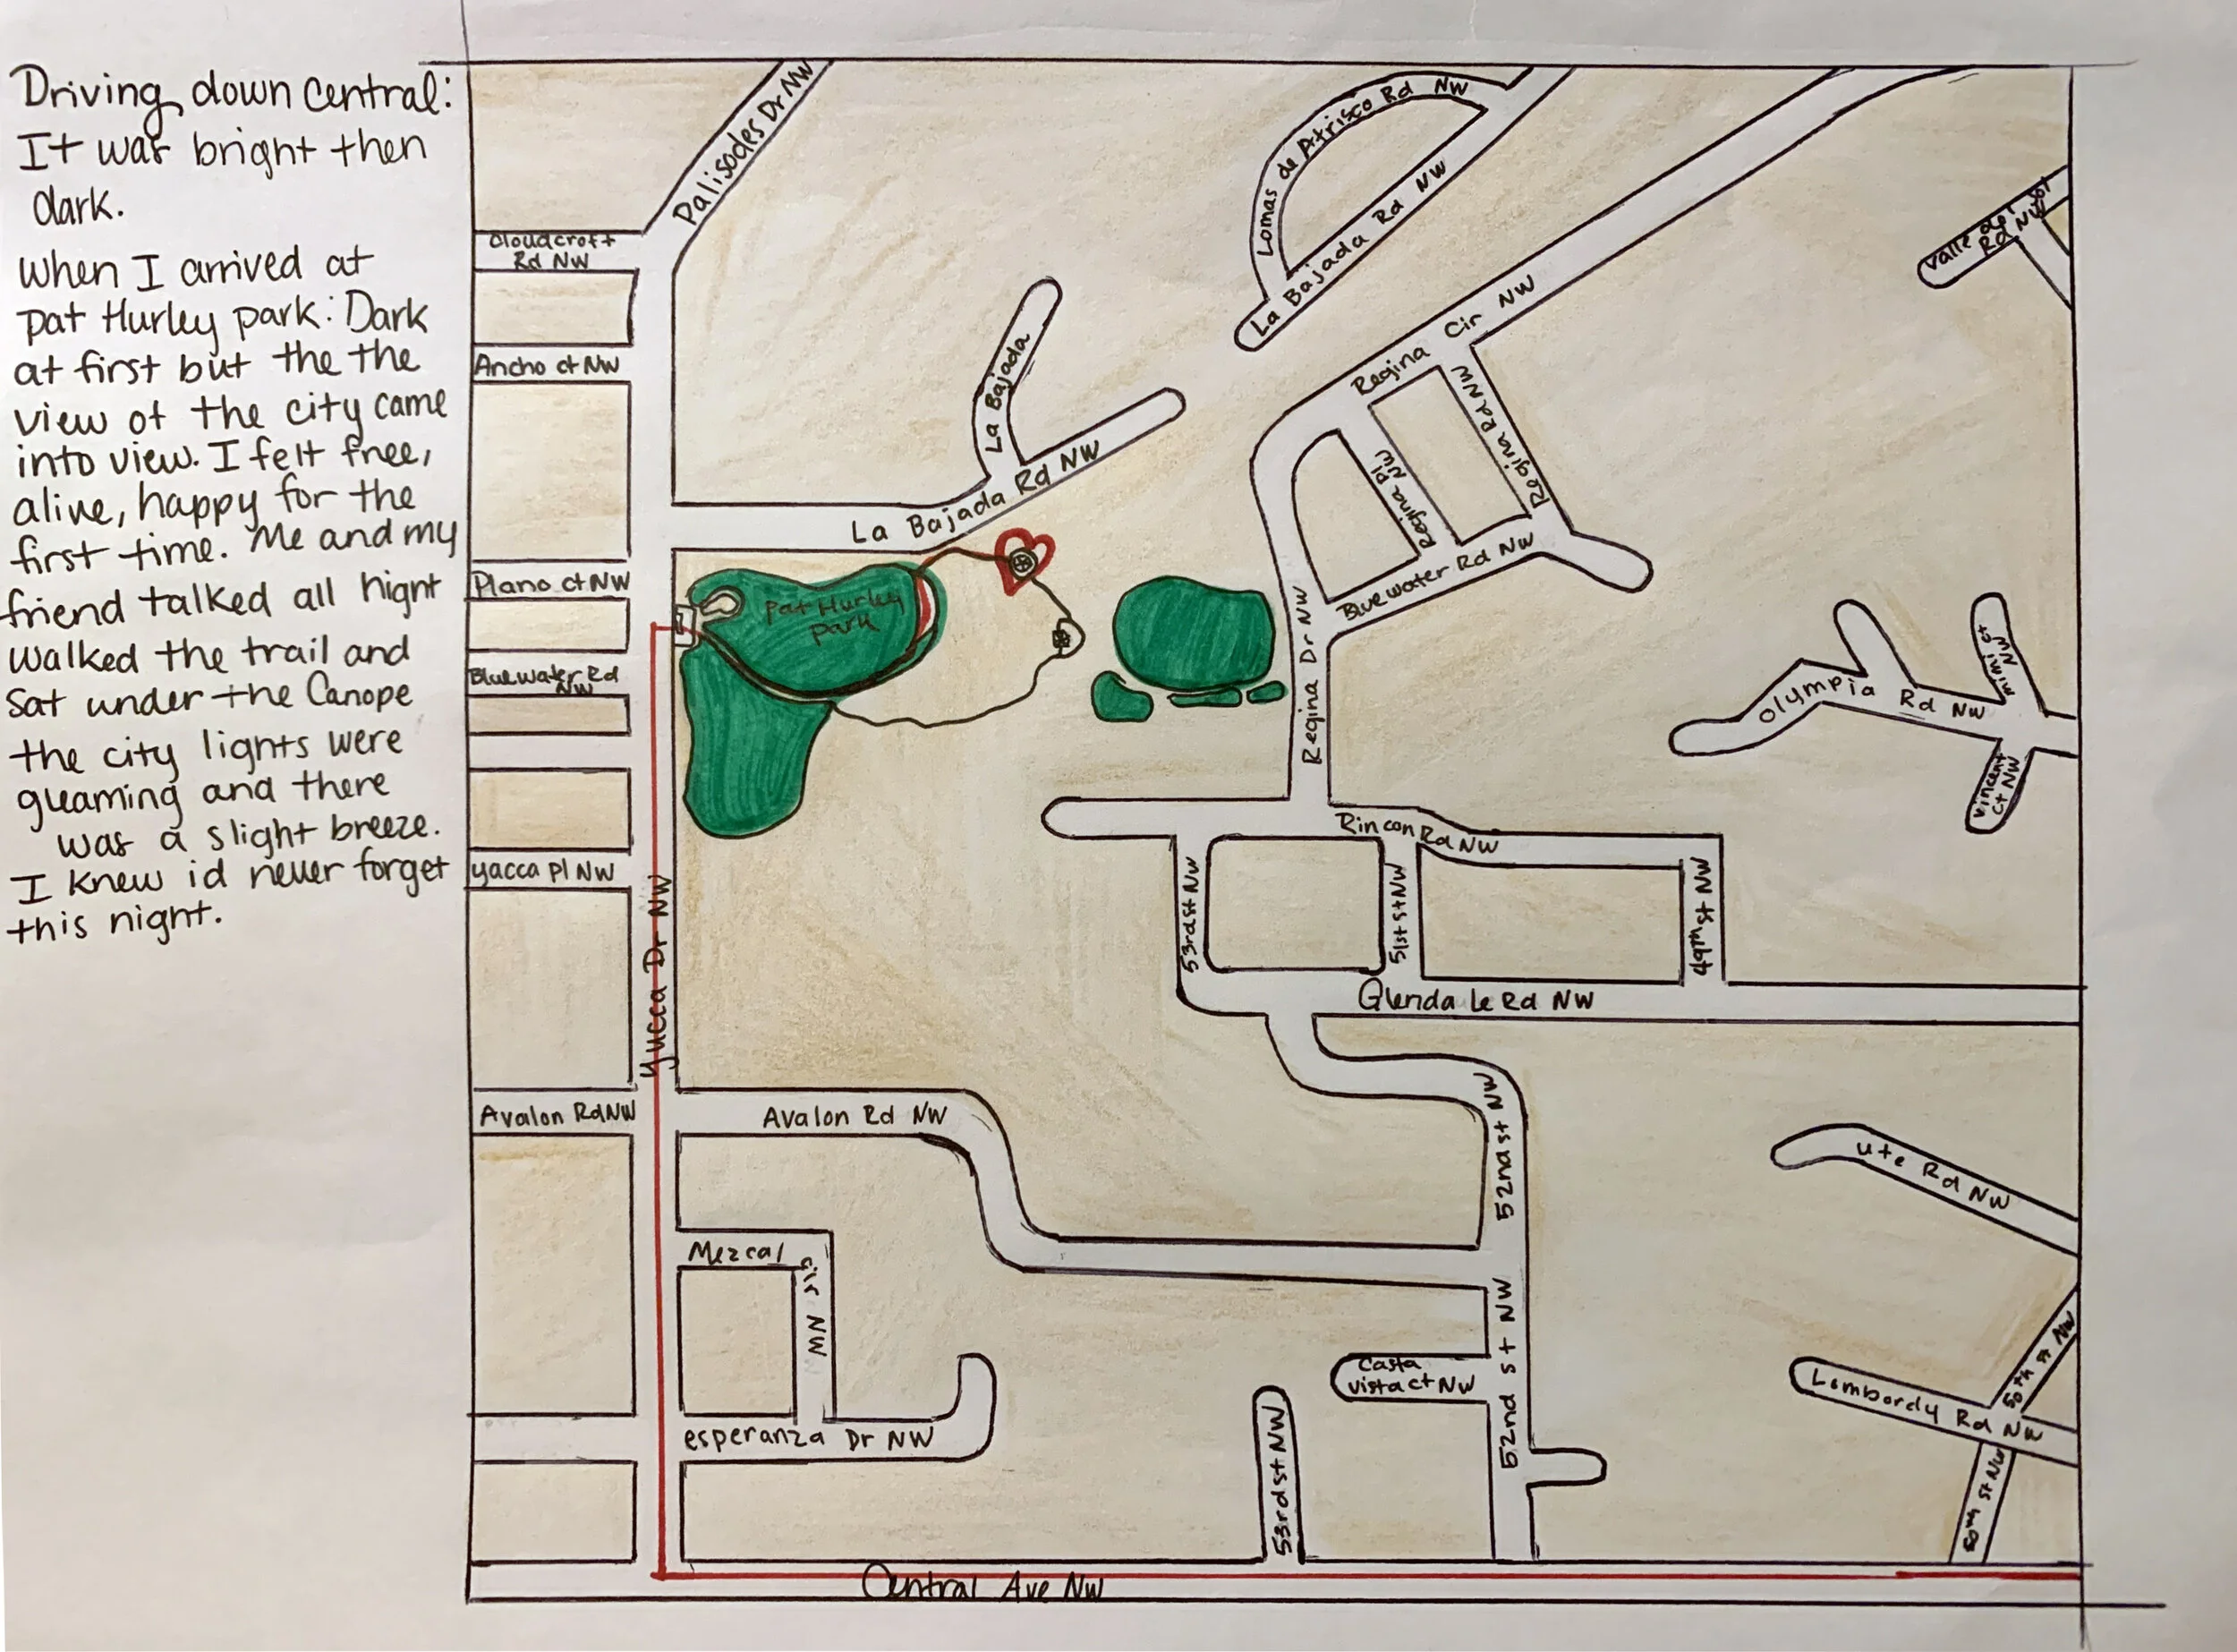 Driving down Central:
It was bright then
dark.
When I arrived at
pat Hurley park: Dark
at first but the the
view of the city came
into view. I felt free,
alive, happy for the
first time. Me and my
friend talked all night
walked the trail and
sat under the Canope
the city lights were
gleaming and there
was a slight breeze.
I knew id never forget
this night.
Palisodes Dr NW
Cloudcroft
Rd NW
Ancho ct NW
Plano ct NW
Bluewater Rd
NW
yacca pl NW
Yucca Dr NW
Avalon Rd NW
Avalon Rd NW
Mezcal
Cir NW
esperanza Dr NW
Central Ave NW
La Bajada
La Bajada Rd NW
Pat Hurley
park
Lomas de Atrisco Rd NW
La Bajada Rd NW
Regina Cir NW
Regina Rd NW
Regina Pl
NW
Bluewater Rd NW
Regina Dr NW
Valle del
Rd NW
Olympia Rd NW
mimi ct
NW
Vincent
ct NW
Rincon Rd NW
53rd st NW
51st st NW
49th st NW
Glenda le Rd NW
52nd st NW
52nd st NW
Casta
vista ct NW
53rd st NW
ute Rd NW
50th st NW
Lombordy Rd NW
50th st NW